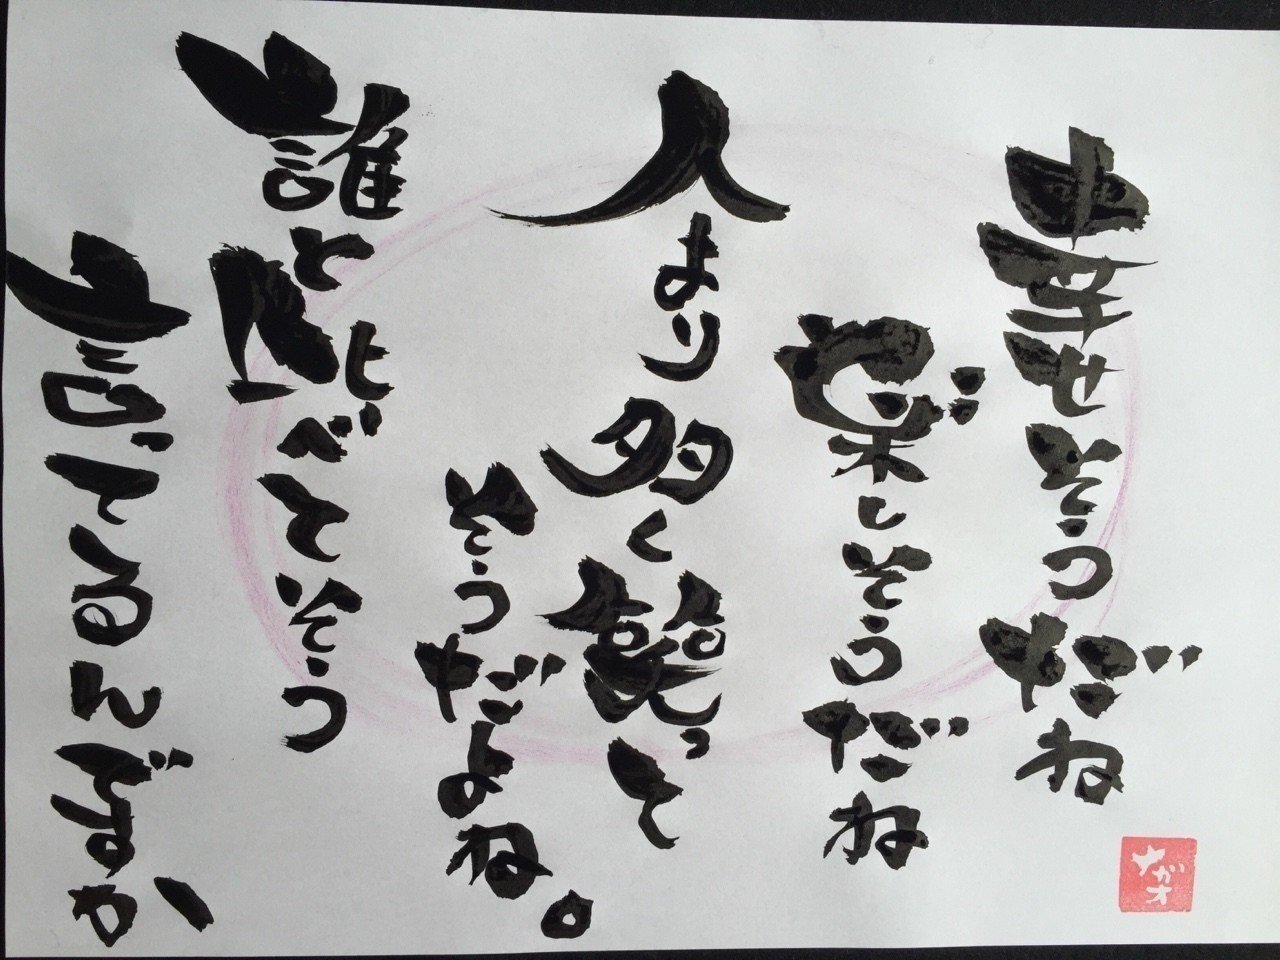 幸せそうだね
楽しそうだね
人より多く笑って
そうだよね。
誰と比べてそう
言ってるんだか、
ナガオ